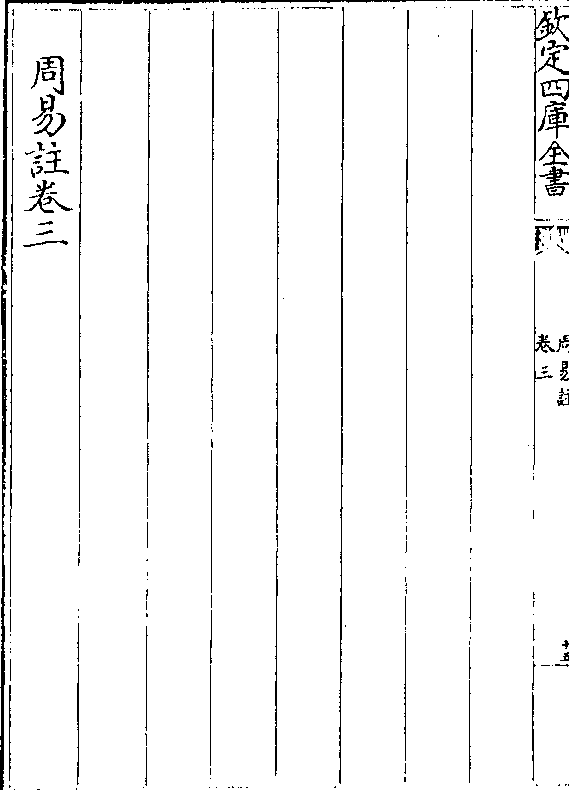 欽定四庫全書
周易註
卷三
十五
周易註卷三